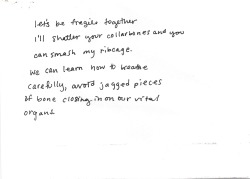 let's be fragile together
I'll shatter your collarbones and you
can smash my ribcage.
we can learn how to breathe
carefully, avoid jagged pieces
of bone closing in on our vital
organs